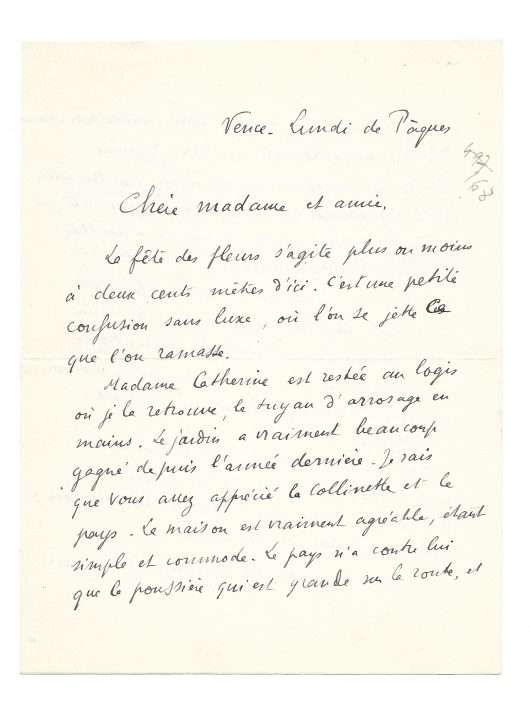 Vence. Lundi de Pâques
497/63
Chère madame et amie,
La fête des fleurs s'agite plus ou moins
à deux cents mètres d'ici. C'est une petite
confusion sans luxe, où l'on se jette ce
que l'on ramasse.
Madame Catherine est restée au logis
où je la retrouve, le tuyau d'arrosage en
mains. Le jardin a vraiment beaucoup
gagné depuis l'année dernière. Je sais
que vous avez apprécié la Collinette et le
pays. La maison est vraiment agréable, étant
simple et commode. Le pays n'a contre lui
que la poussière qui est grande sur la route, et